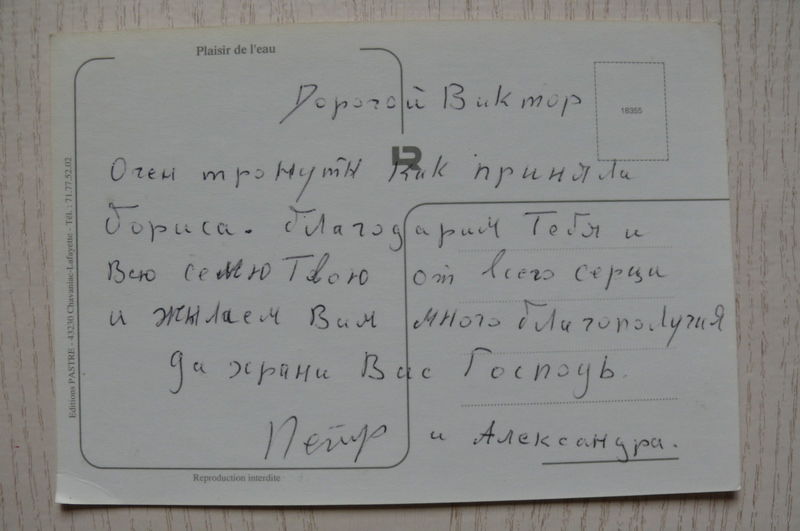 Plaisir de l'eau
Дорогой Виктор
18355
Очен тронуты как приняли
Бориса. благодарим Тебя и
Всю семю Твою от всего серци
и жылаем Вам много благополучия
Да храни Вас Господь.
Петр и Александра.
Reproduction interdite
Editions PASTRE - 43230 Chavaniac-Lafayette - Tél. : 71.77.52.02